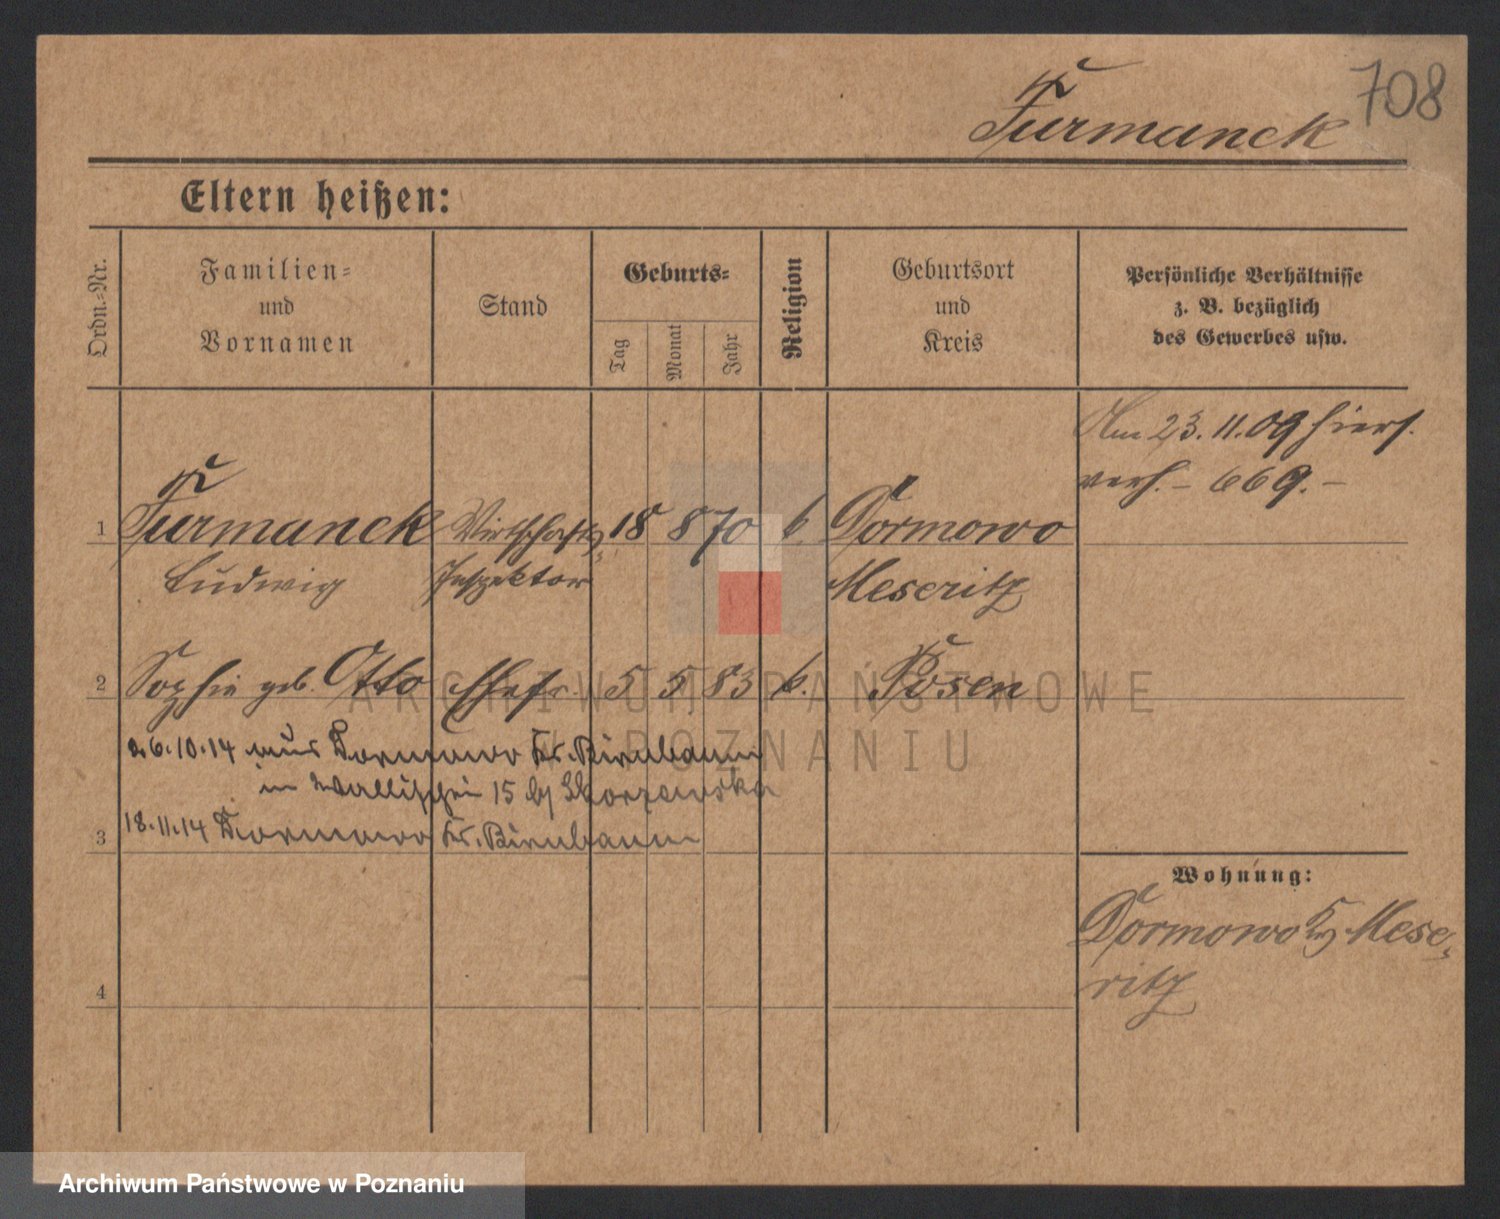 708
Furmanek
Eltern heißen:
Ordn.-Nr.
Familien-
und
Vornamen
Stand
Geburts-
Tag
Monat
Jahr
Religion
Geburtsort
und
Kreis
Persönliche Verhältnisse
z. B. bezüglich
des Gewerbes usw.
Am 23.11.09 hiers.
verh. – 669. –
1 Furmanek Wirtschafts- 18 8 70 k. Dormowo
Ludwig Inspektor Meseritz
2 Sophie geb. Otto Ehefr. 5 5 83 k. Posen
26.10.14 aus Dormowo Kr. Birnbaum
in Wallischei 15 bj
3 18.11.14 Dormowo Kr. Birnbaum
Wohnung:
Dormowo Krs Mese-
ritz
4
ARCHIWUM PAŃSTWOWE
W POZNANIU
Archiwum Państwowe w Poznaniu